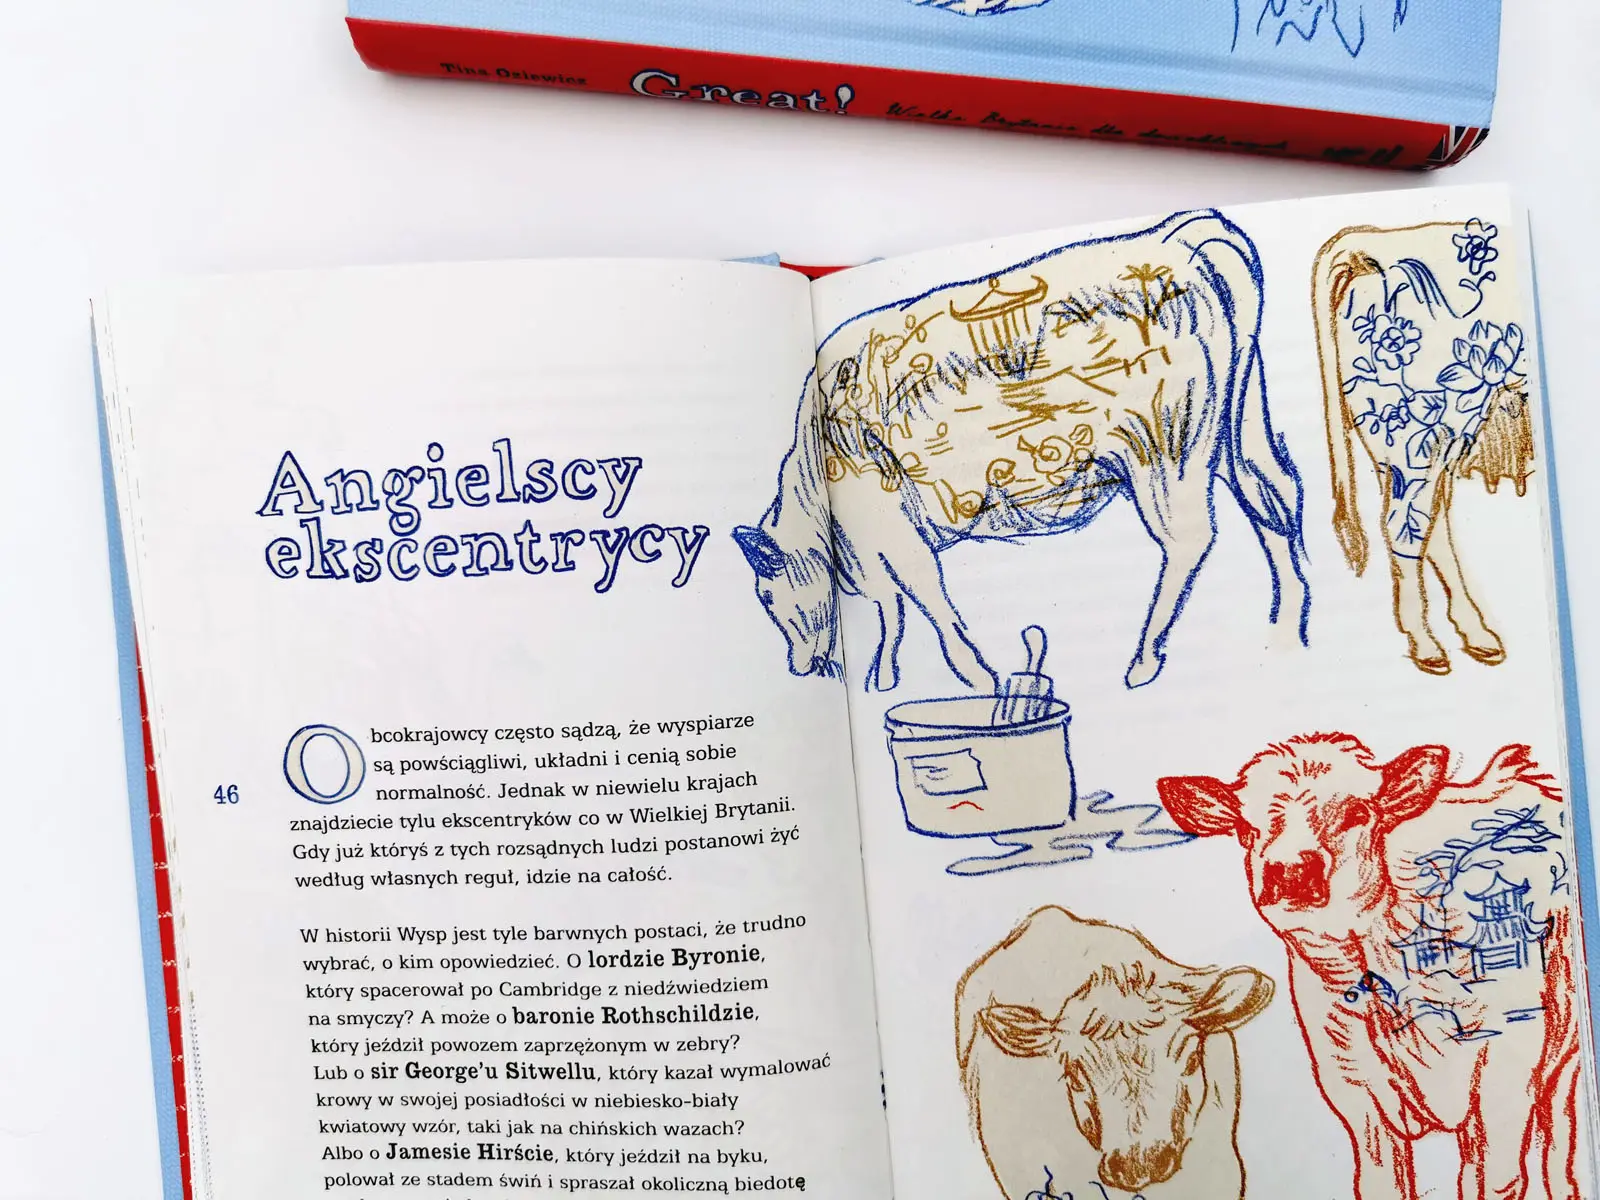 Tina Oziewicz Great! Wielka Brytania dla dociekliwych
Angielscy
ekscentrycy
46
Obcokrajowcy często sądzą, że wyspiarze
są powściągliwi, układni i cenią sobie
normalność. Jednak w niewielu krajach
znajdziecie tylu ekscentryków co w Wielkiej Brytanii.
Gdy już któryś z tych rozsądnych ludzi postanowi żyć
według własnych reguł, idzie na całość.
W historii Wysp jest tyle barwnych postaci, że trudno
wybrać, o kim opowiedzieć. O lordzie Byronie,
który spacerował po Cambridge z niedźwiedziem
na smyczy? A może o baronie Rothschildzie,
który jeździł powozem zaprzężonym w zebry?
Lub o sir George’u Sitwellu, który kazał wymalować
krowy w swojej posiadłości w niebiesko-biały
kwiatowy wzór, taki jak na chińskich wazach?
Albo o Jamesie Hirście, który jeździł na byku,
polował ze stadem świń i spraszał okoliczną biedotę